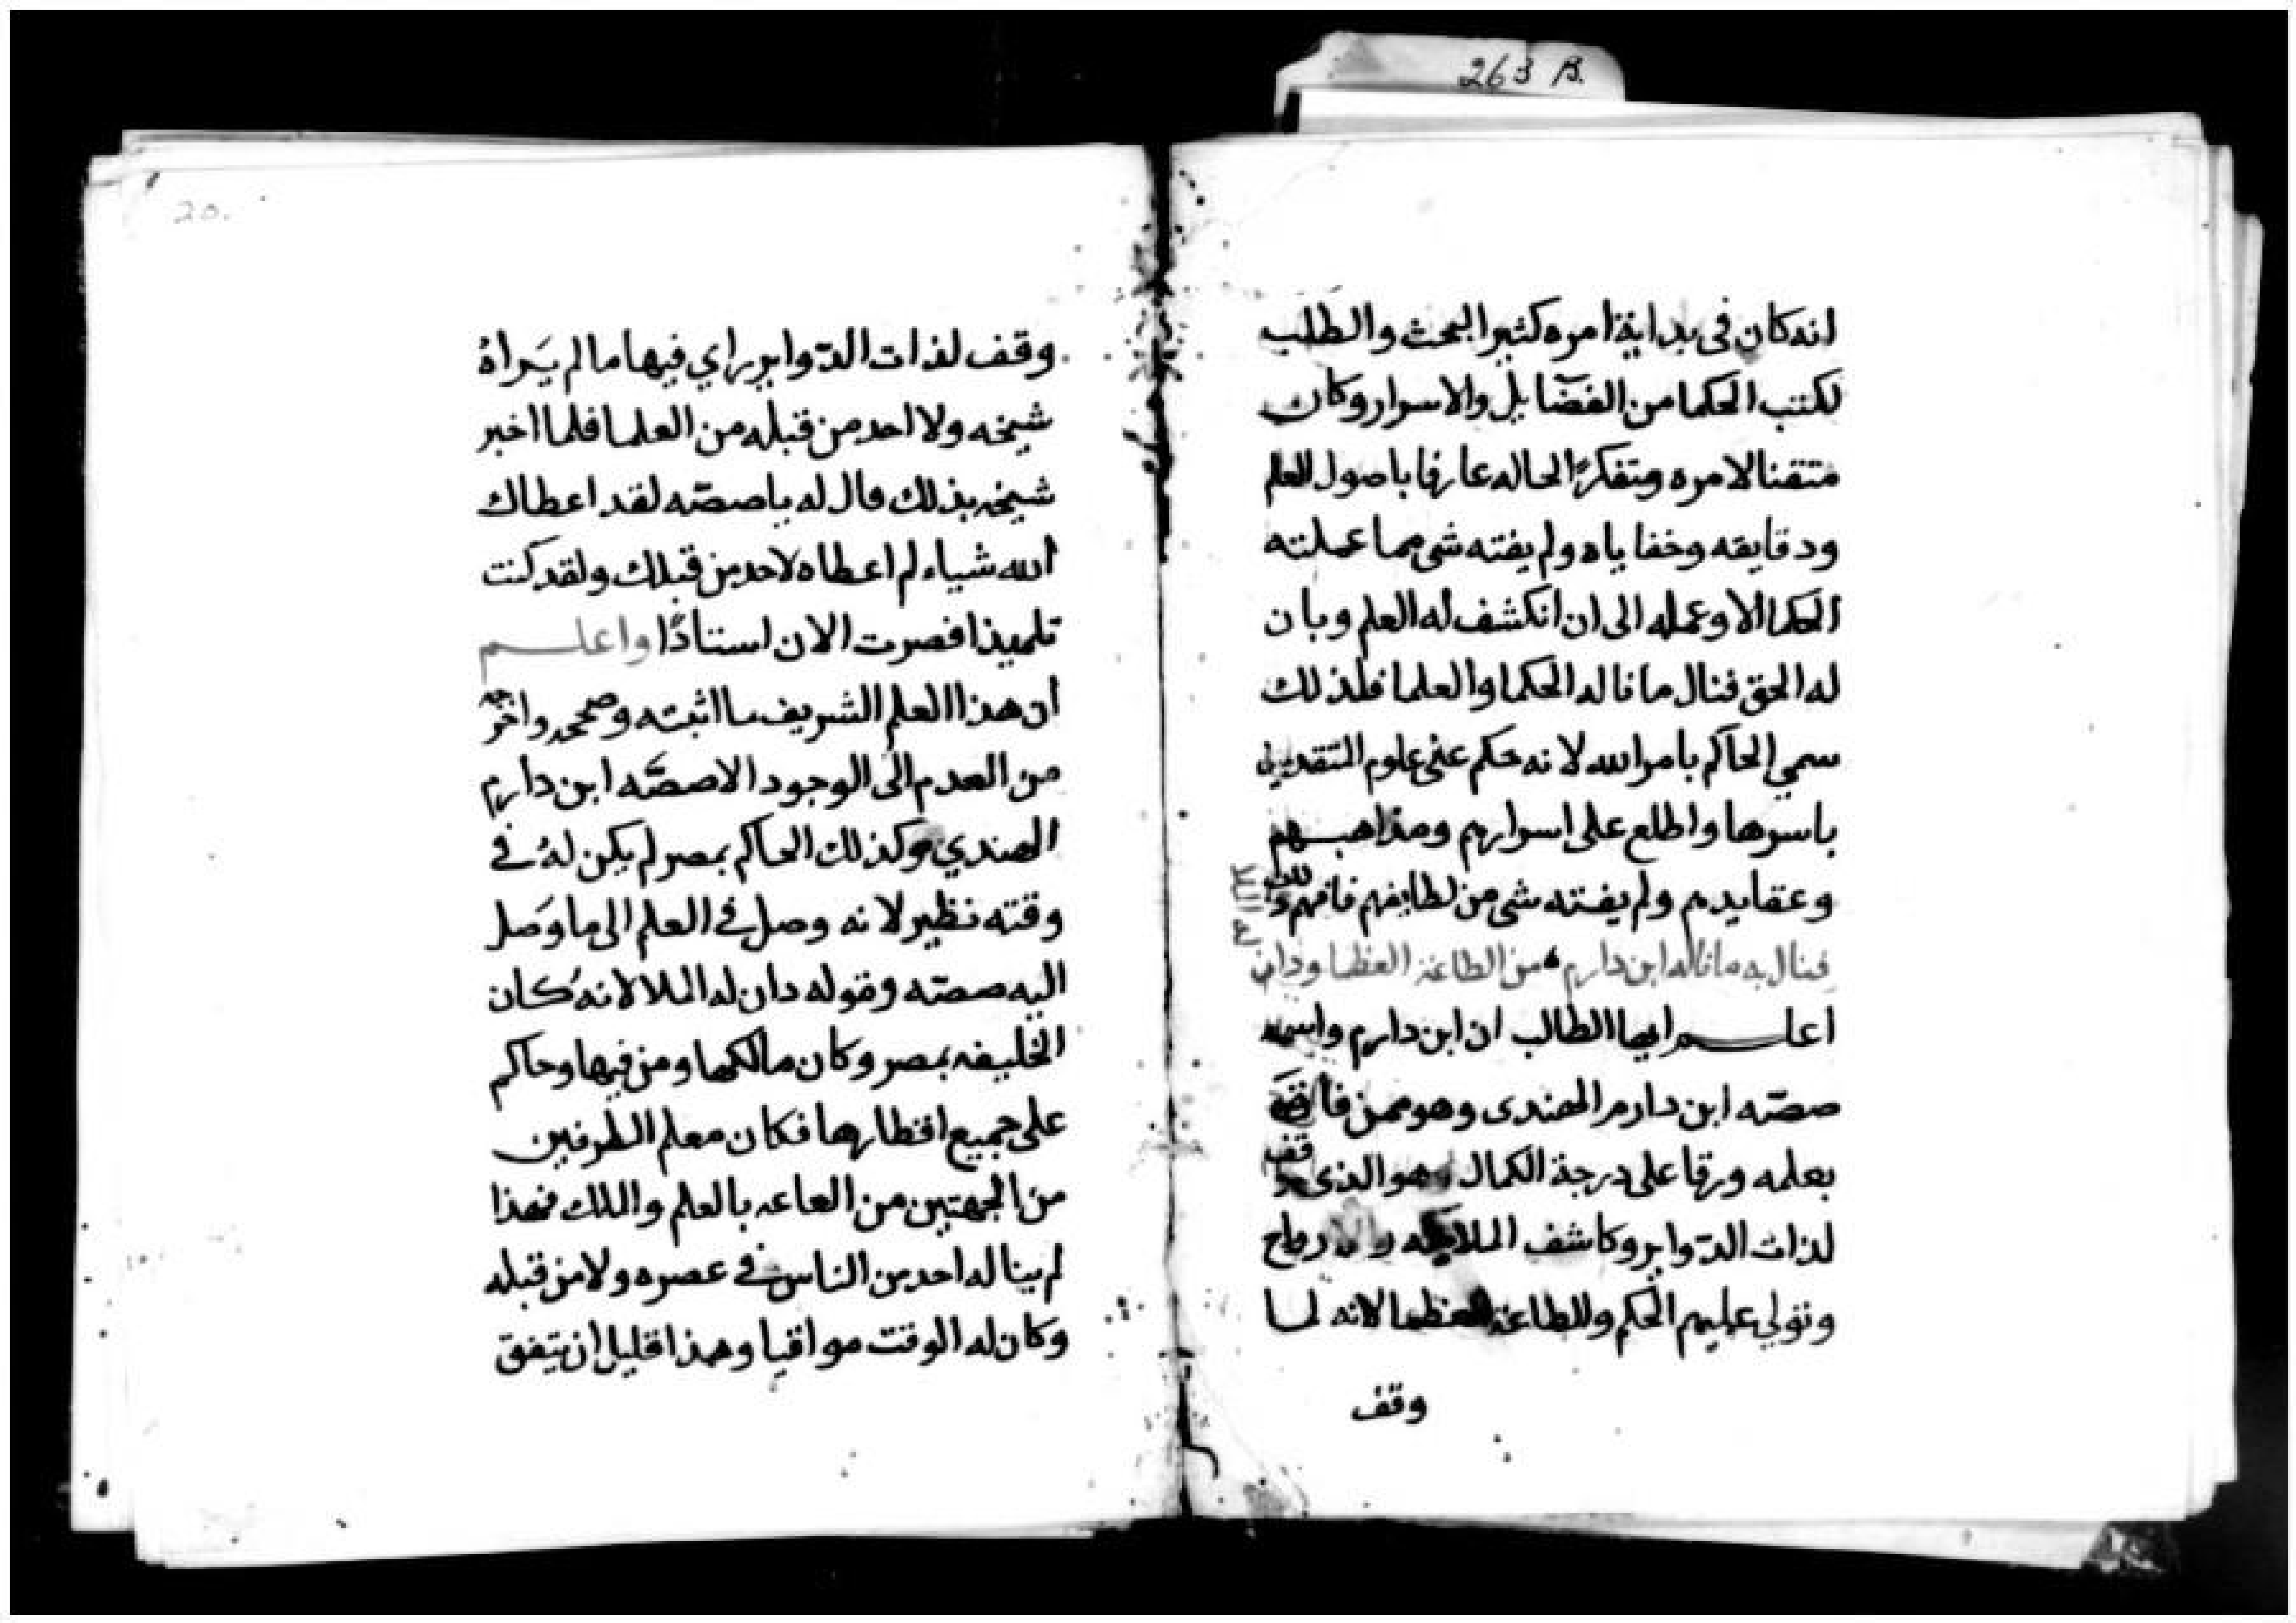 263 B.
انه كان فى بداية امره كثير البحث والطلب
لكتب الحكما من الفضايل والاسرار وكان
متقنا لامره ومتفكرًا لحاله عارفا باصول العلم
ودقايقه وخفاياه ولم يفته شى مما عملته
الحكما الا وعمله الى ان انكشف له العلم وبان
له الحق فنال ما ناله الحكما والعلما فلذلك
سمي الحاكم بامر الله لانه حكم على علوم المتقدمين
باسرها واطلع على اسرارهم ومذاهبهم
وعقايدهم ولم يفته شى من لطايفهم فافهم
فنال به ما ناله ابن دارم من الطاعة العظما ودان
اعلم ايها الطالب ان ابن دارم واسمه
صصّه ابن دارم الهندى وهو ممن فاق
بعلمه ورقا على درجة الكمال وهو الذى وقف
لذات الدّواير وكاشف الملايكه والارواح
وتولي عليهم الحكم والطاعة العظما لانه لما
وقف
20.
وقف لذات الدّواير راي فيها ما لم يَراهُ
شيخه ولا احد من قبله من العلما فلما اخبر
شيخه بذلك قال له ياصصّه لقد اعطاك
الله شياء لم اعطاه لاحد من قبلك ولقد كنت
تلميذا فصرت الان استاذًا واعلم
ان هذا العلم الشريف ما اثبته وصححه واخرجه
من العدم الى الوجود الا صصّه ابن دارم
الهندي وكذلك الحاكم بمصر لم يكن لهُ في
وقته نظير لانه وصل في العلم الى ما وَصل
اليه صصّه وقوله دان له الملا لانه كان
الخليفه بمصر وكان مالكها ومن فيها وحاكم
على جميع اقطارها فكان معلم الطرفين
من الجهتين من الطاعه بالعلم والملك فهذا
لم يناله احد من الناس في عصره ولا من قبله
وكان له الوقت موافيا وهذا قليل ان يتفق